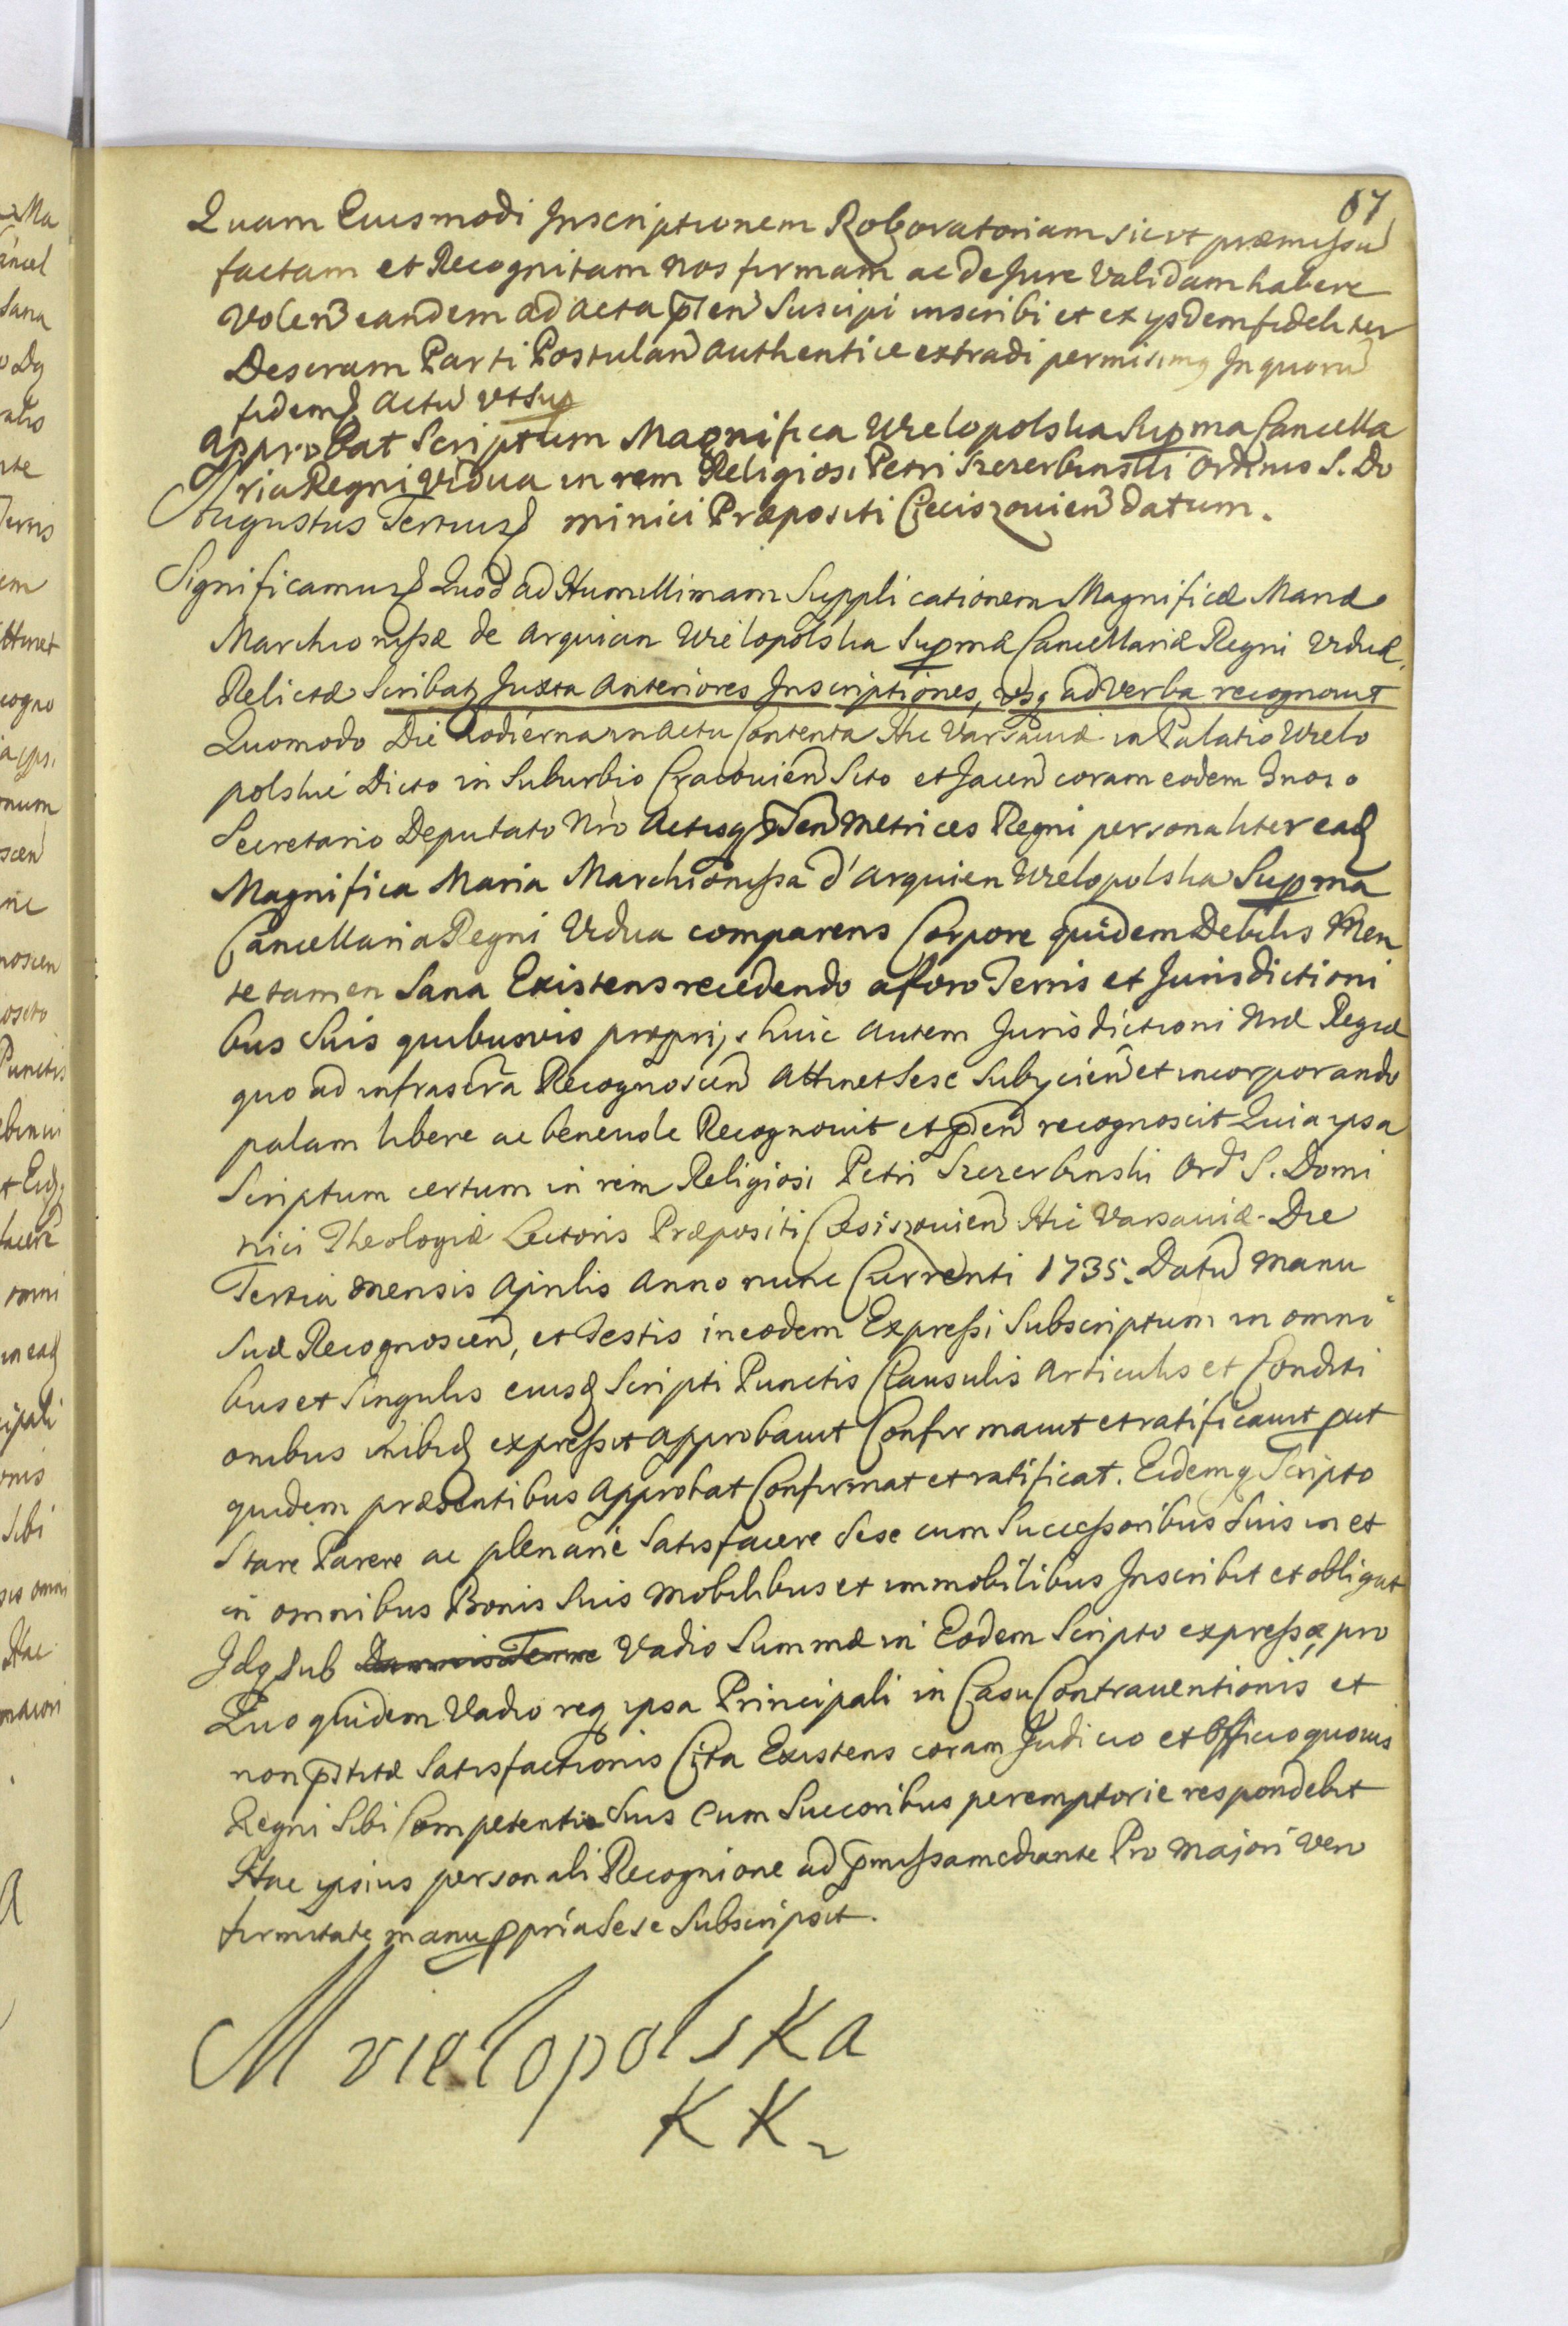 67
Quam Eiusmodi Inscriptionem Roboratoriam sicut præmissū
factam et Recognitam nos firmam ac de Jure Validam habere
Volen̄ eandem ad acta p̄ten̄ Suscipi inscribi et ex ijsdem fideliter
Descram Parti Postulan̄ authentice extradi permisimq In quorū
fidemꝭ Actū ut sup
Approbat Scriptum Magnifica Wielopolska Supma Cancella
ria Regni Vidua in rem Religiosi Petri Szczerbinskii Ordinis S. Do
Augustus Tertiusꝭ minici Præpositi Cieciszouien̄ datum.
Significamusꝭ Quod ad Humillimam Supplicationem Magnificæ Mariæ
Marchionissæ de Arquian Wielopolska Supmæ Cancellariæ Regni Viduæ
Relictæ Scribatq Juxta Anteriores Inscriptiones, usq ad verba recognouit
Quomodo Die hodierna in Actu Contenta Hic Varsauiæ in Palatio Wielo
polskie Dicto in Suburbio Cracouien̄ Sito et Jacen̄ coram eodem Gnoso
Secretario Deputato Nr̄o Actisq p̄ten̄ Metrices Regni personaliter eadꝭ
Magnifica Maria Marchionissa d'Arquien Wielopolska Supma
Cancellaria Regni Vidua comparens Corpore quidem Debilis Men
te tamen Sana Existens recedendo a foro Terris et Jurisdictioni
bus Suis quibusvis proprijs huic autem Jurisdictioni Nræ Regiæ
quo ad infrascr̄a Recognoscen̄ Attinet Sese Subijcien̄ et incorporando
palam libere ac beneuole Recognouit et p̄den̄ recognoscit Quia ipsa
Scriptum certum in rem Religiosi Petri Szczerbinski Ord. S. Domi
nici Theologiæ Lectoris Præpositi Cesiszouien̄ Hic Varsauiæ Die
Tertia mensis Aprilis Anno nunc Currenti 1735. Datū manu
Suæ Recognoscen̄, et Testis in eodem Expressi Subscriptum in omni
bus et Singulis eiusdꝭ Scripti Punctis Clausulis Articulis et Conditi
onibus inibidꝭ expressit approbauit Confirmauit et ratificauit put
quidem præsentibus Approbat Confirmat et ratificat. Eidemq Scripto
Stare Parere ac plenarie Satisfacere Sese cum Successoribus Suis in et
in omnibus Bonis Suis Mobilibus et immobilibus Inscribit et obligat
Idq sub Damnis Terræ Vadio Summæ in Eodem Scripto expressæ, pro
Quo quidem Vadio req ipsa Principali in Casu Contrauentionis et
non p̄stitæ Satisfactionis Cita Existens coram Judicio et Officio quouis
Regni Sibi Competenti Suis Cum Succoribus peremptorie respondebit
Hac ipsius personali Recognione ad p̄missa mediante Pro Majori vero
firmitate manu ppria Sese Subscripsit.
M vielopolska
KK